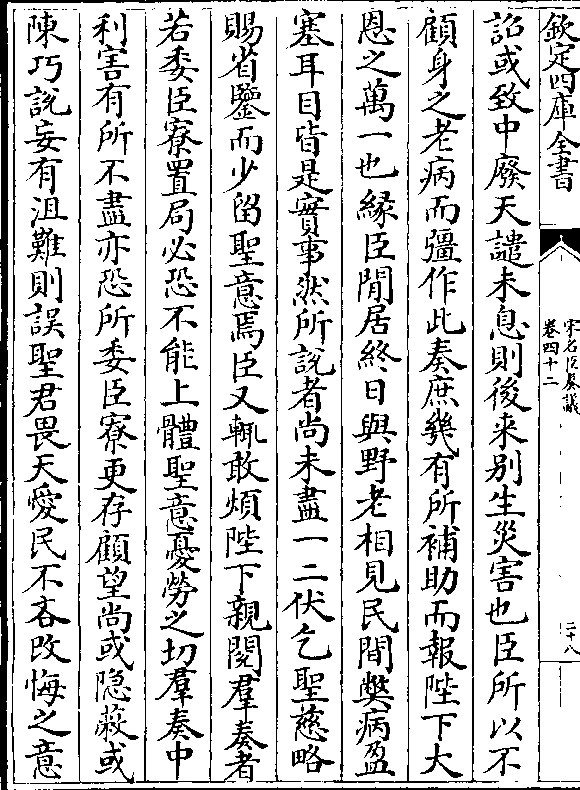 欽定四庫全書
宋名臣奏議
卷四十二
二十八
詔或致中廢天譴未息則後来别生災害也臣所以不
顧身之老病而彊作此奏庶幾有所補助而報陛下大
恩之萬一也緣臣閒居終日與野老相見民間弊病盈
塞耳目皆是實事然所説者尚未盡一二伏乞聖慈略
賜省鑒而少留聖意焉臣又輒敢煩陛下親閱羣奏者
若委臣寮置局必恐不能上體聖意憂勞之切羣奏中
利害有所不盡亦恐所委臣寮更存顧望尚或隐蔽或
陳巧説妄有沮難則誤聖君畏天愛民不吝改悔之意